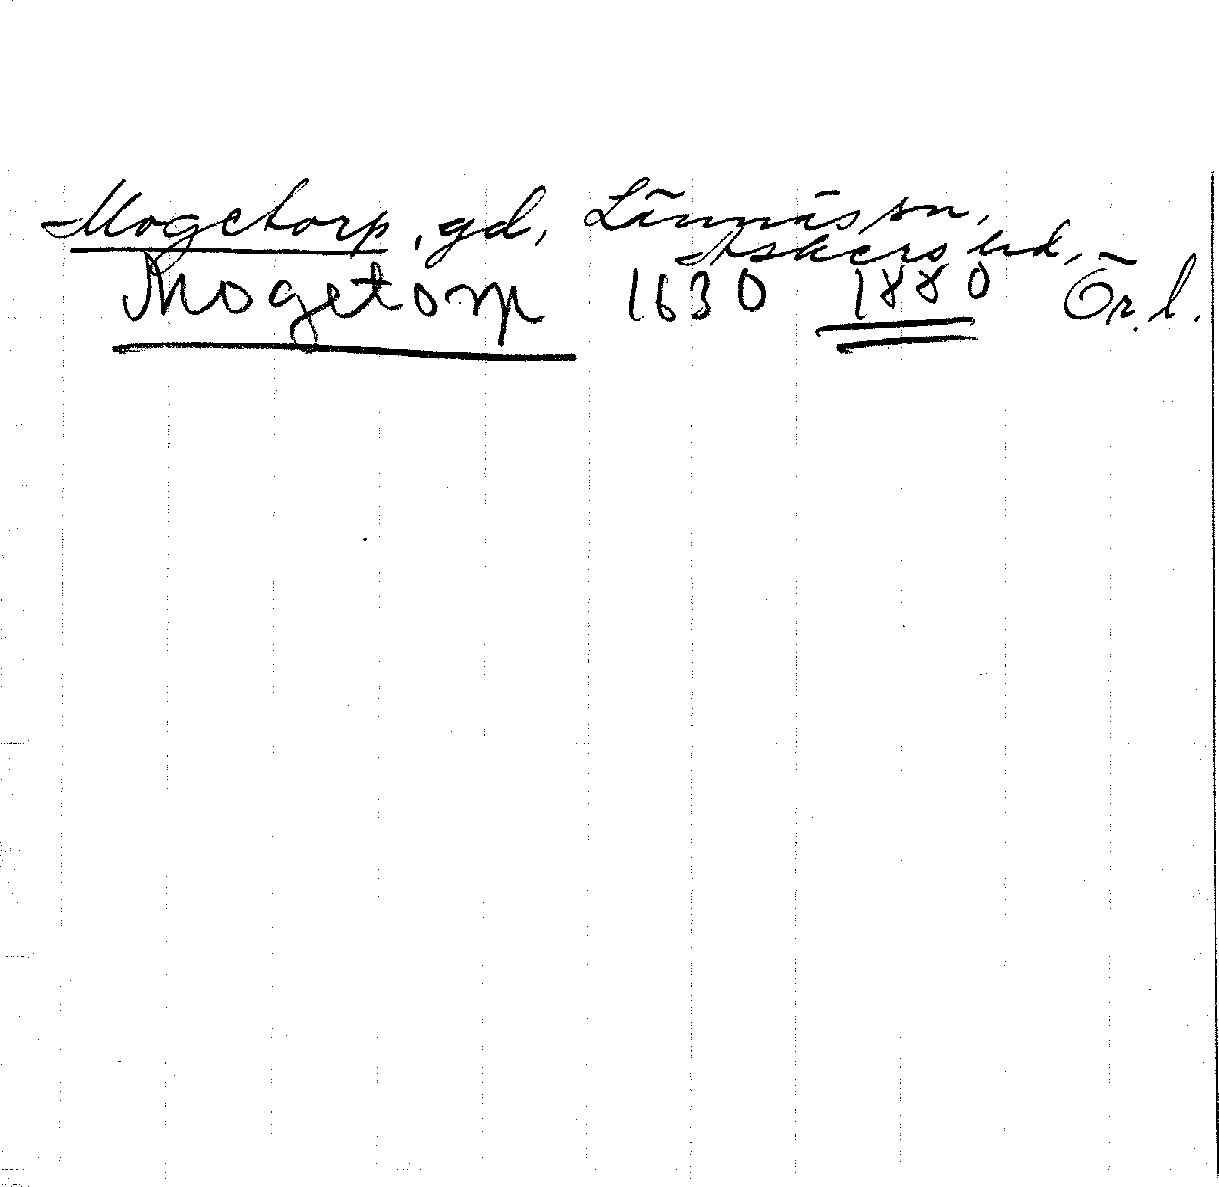 Mogetorp, gd, Lännäs sn,
Askers hd,
Mogetorp 1630 1880 Ör. l.